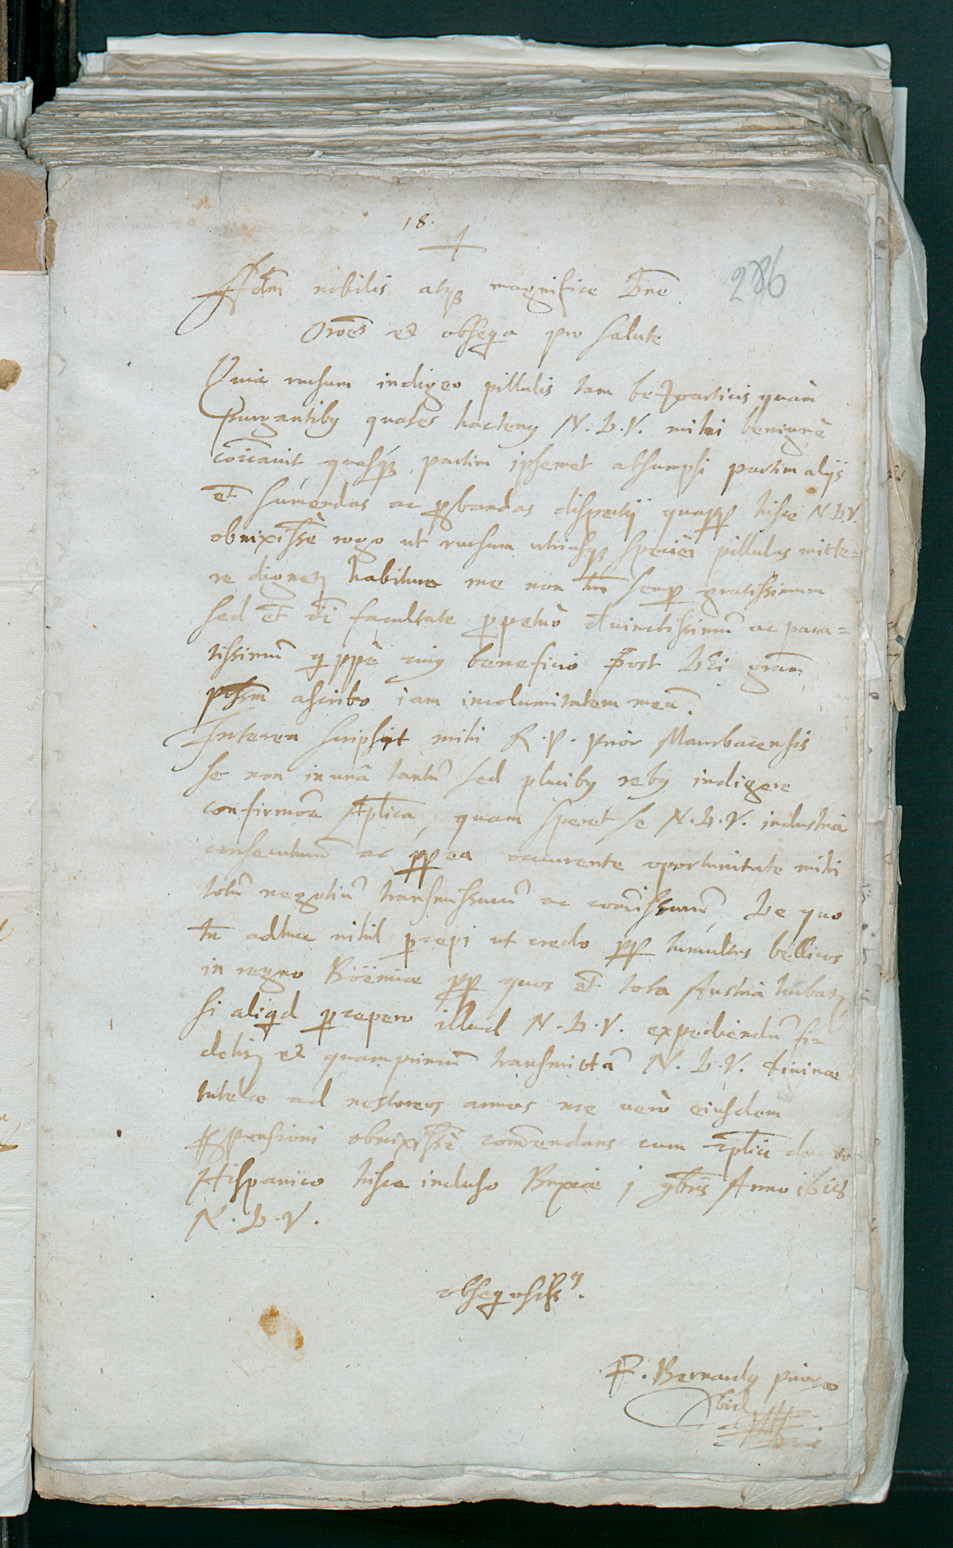 18.
286
Adm nobilis atq magnifice Dne
Oroes et obseqa pro salute
Quia rursum indigeo pillulis tam bezoarticis quàm
purgantibq quales hactenq N. D. V. mihi benignè
coicauit quasq partim ipsemet assumpsi partim alijs
et sumendas ac pbandas dispertij quapp hisce N D V.
obnixissè rogo ut rursum utriusq speciei pillulas mitte=
re dignetr habitura me non tm semp gratissimum
sed et di facultate ppetuò deuinctissimū ac para=
tissimū qppè cuiq beneficio post Dei gram
pssm ascribo iam incolumitatem meā.
Interea scripsit mihi R. P. Prior Maurbacensis
se non in unā tantū sed pluribq rebq indigere
confirmoe Aplica, quam speret se N. D. V. industria
consecuturū ac ppea occurrente oportunitate mihi
totū negotiū transmissurū ac comissurū, De quo
tn adhuc nihil pcepi ut credo pp tumultus bellicos
in regno Böemiae pp quos et tota Austria turbatr,
si aliqd pcepero illud N. D. V. expediendū fi
delitr et quamprimū transmittā N. D. V. diuinae
tutelae ad nestoreos annos me verò eiusdem
ppensioni obnixissè comendans cum
Hispanico hisce incluso Brixiae j 9bris Anno 1618
N. D. V.
obseqosissq.
F. Bernardq prior